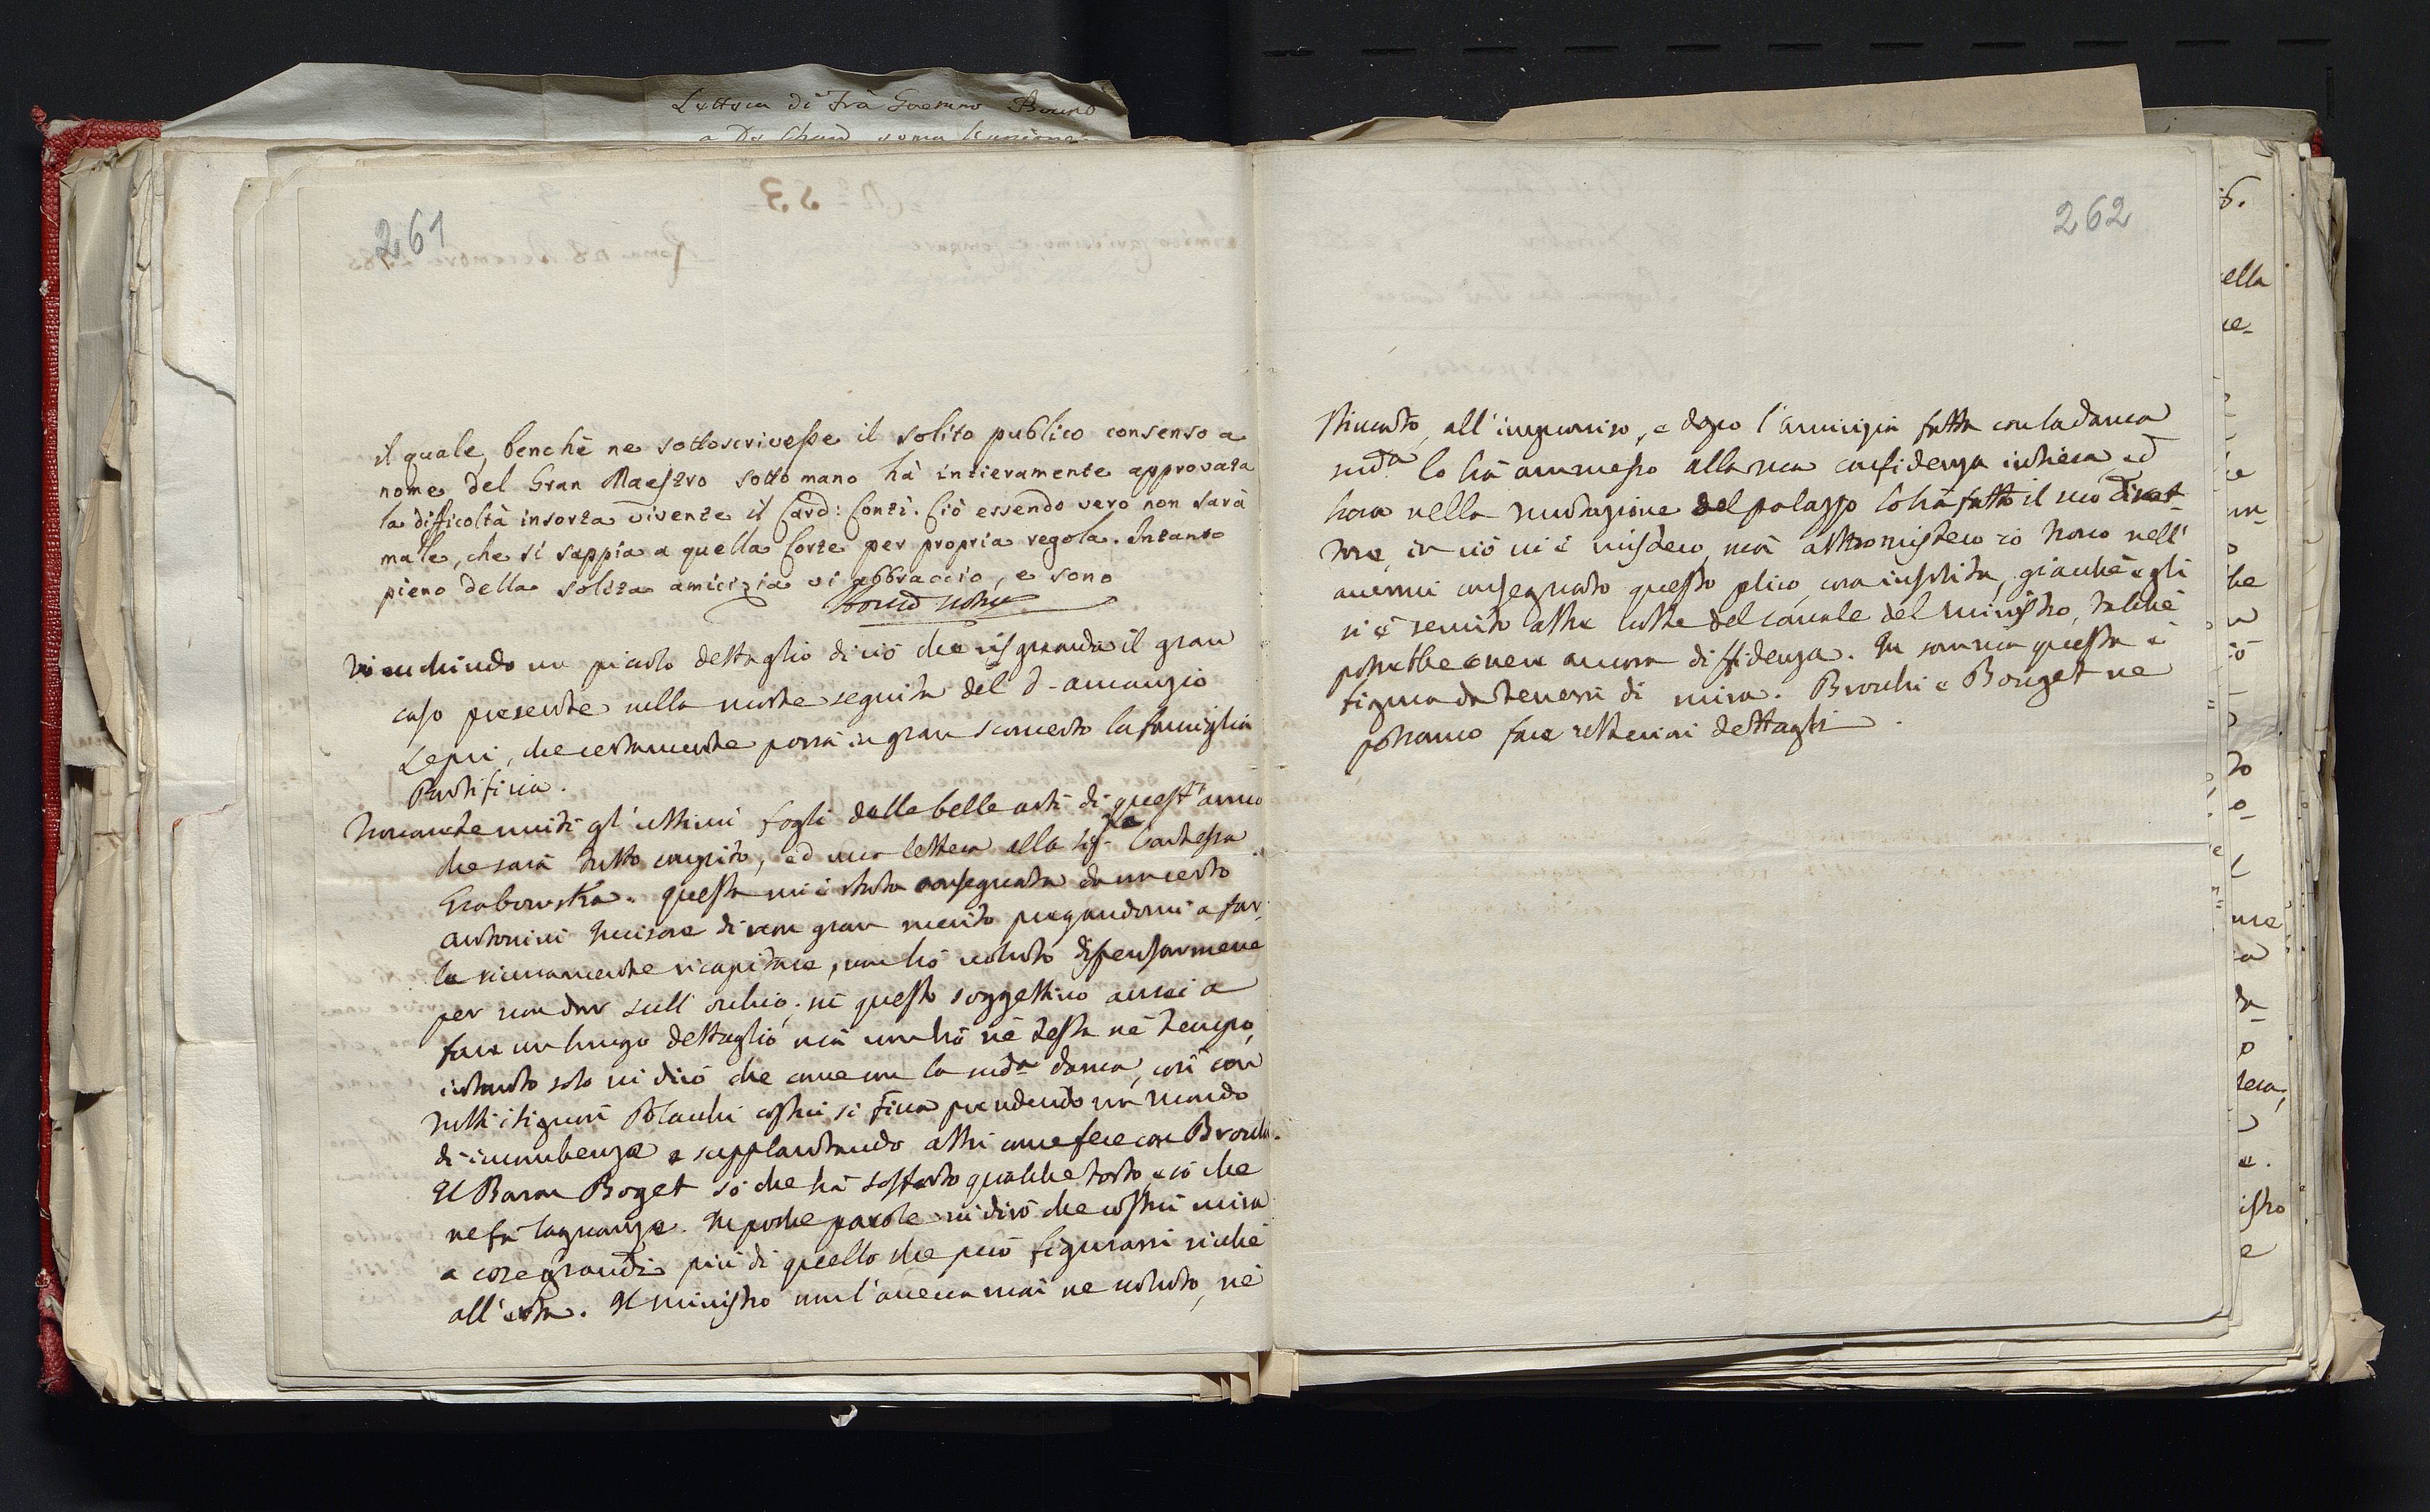 Lettera di Frà Gaetano Bruno
261
il quale, benchè ne sottoscrivesse il solito publico consenso a
nome del Gran Maestro sotto mano hà intieramente approvata
la difficoltà insorta vivente il Card: Conti. Ciò essendo vero non sarà
male, che si sappia a quella Corte per propria regola. Intanto
pieno della solita amicizia vi abbraccio, e sono
Vi acchiudo un piccolo dettaglio di ciò che risguarda il gran
caso presente nella morte seguita del d. amanzio
Lepri, che certamente porrà in gran sconcerto la famiglia
Pontificia.
Troverete uniti gl'ultimi fogli delle belle arti di quest'anno
che sarà tutto compito, ed una lettera alla Sigra Contessa
Grabowska. questa mi è stata consegnata da un certo
Antonini Incisore di non gran merito pregandomi a far-
la sicuramente ricapitare, non hò voluto dispensarmene
per non dar sull'occhio; di questo soggettino avrei a
fare un lungo dettaglio, mà non hò nè testa nè tempo,
intanto solo vi dirò che come con la sudda dama, così con
tutti i signori Polacchi costui si ficca prendendo un mondo
di incumbenze e supplantando altri come fece con Brocchi.
Il Baron Boget sò che hà sofferto qualche torto, e ciò che
ne fà lagnanze. In poche parole vi dirò che costui mira
a cose grandi più di quello che può figurarsi sicchè
all'erta. Il ministro non l'aveva mai ne voluto, nè
262
stimato, all'improviso, e dopo l'amicizia fatta con la dama
sudda lo hà ammesso alla sua confidenza intiera, ed
hora nella mutazione del palazzo lo hà fatto il suo Diret-
tore, in ciò vi è mistero, mà altro mistero io trovo nell'
avermi consegnato questo plico, cosa insolita, giacchè egli
si è servito altre volte del canale del ministro, talchè
potrebbe essere ancora diffidenza. In somma questa è
figura da tenersi di mira. Brocchi e Bouget ne
potranno fare ulteriori dettagli.